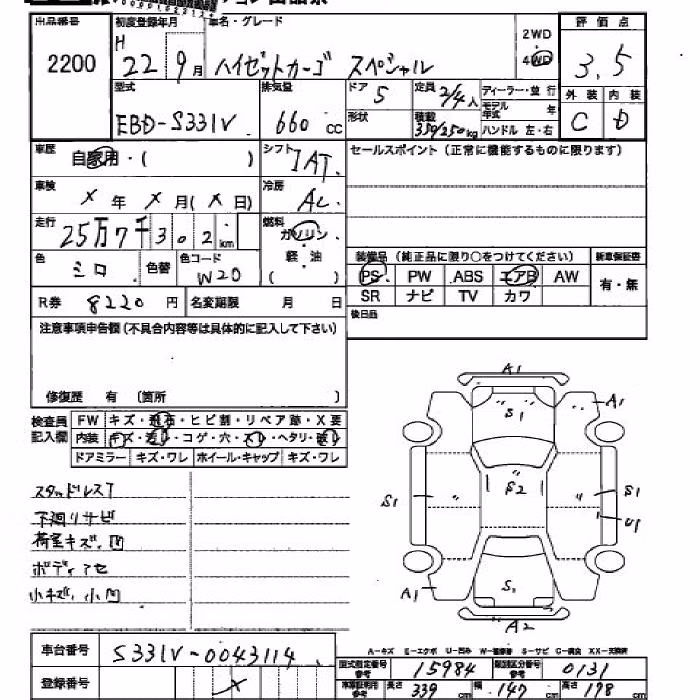 出品番号 初度登録年月 車名・グレード 2WD 4WD 評価点
2200 H 22年 9月 ハイゼットカーゴ スペシャル 3.5
型式 排気量 ドア 5 定員 2/4人 ディーラー・並行 外装 内装
EBD-S331V 660cc 形状 積載 350/250kg モデル年式 年 C D
ハンドル 左・右
車歴 自家用・( ) シフト IAT セールスポイント(正常に機能するものに限ります)
車検 X年 X月(X日) 冷房 AC
走行 25万7千302km 燃料 ガソリン
軽・油
( )
色 シロ 色替 色コード W20
装備品(純正品に限り○をつけてください) 新車保証書
PS PW ABS エアB AW 有・無
SR ナビ TV カワ
R券 8220円 名変期限 月 日 後日品
注意事項申告欄(不具合内容等は具体的に記入して下さい)
修復歴 有(箇所 )
検査員記入欄 FW キズ・飛石・ヒビ割・リペア跡・X要
内装 キズ・汚れ・コゲ・穴・スレ・ヘタリ・破れ
ドアミラー キズ・ワレ ホイール・キャップ キズ・ワレ
スタッドレスT
下廻りサビ
荷室キズ、凹
ボディアセ
小キズ、小凹
A1
S1
A1
S2
S1
S1
U1
A1
S1
A2
A-キズ E-エクボ U-凹み W-補修跡 S-サビ C-腐食 XX-交換済
車台番号 S331V-0043114
登録番号 X
型式指定番号参考 15984 類別区分番号参考 0131
車庫証明用参考 長さ 339cm 幅 147cm 高さ 178cm